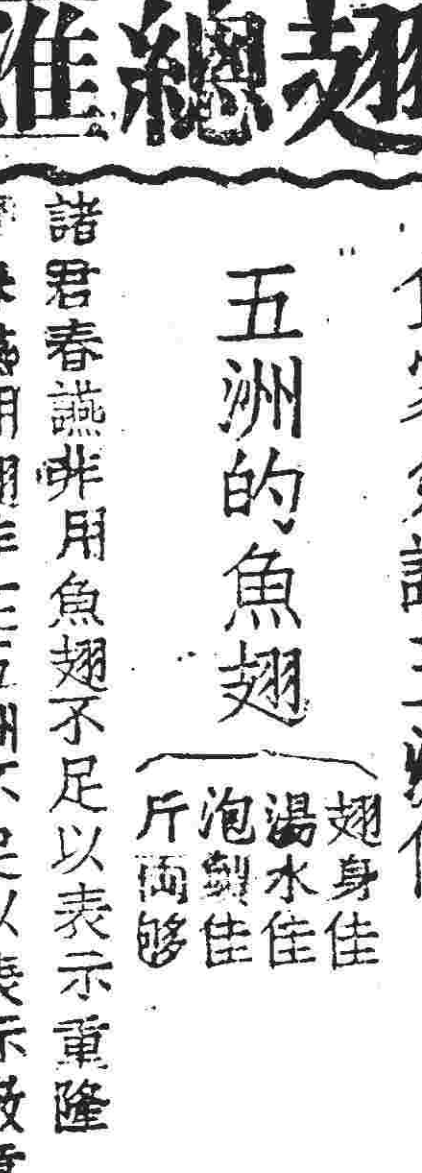 翅總匯
五洲的魚翅
翅身佳
湯水佳
泡製佳
斤両够
諸君春讌非用魚翅不足以表示重隆